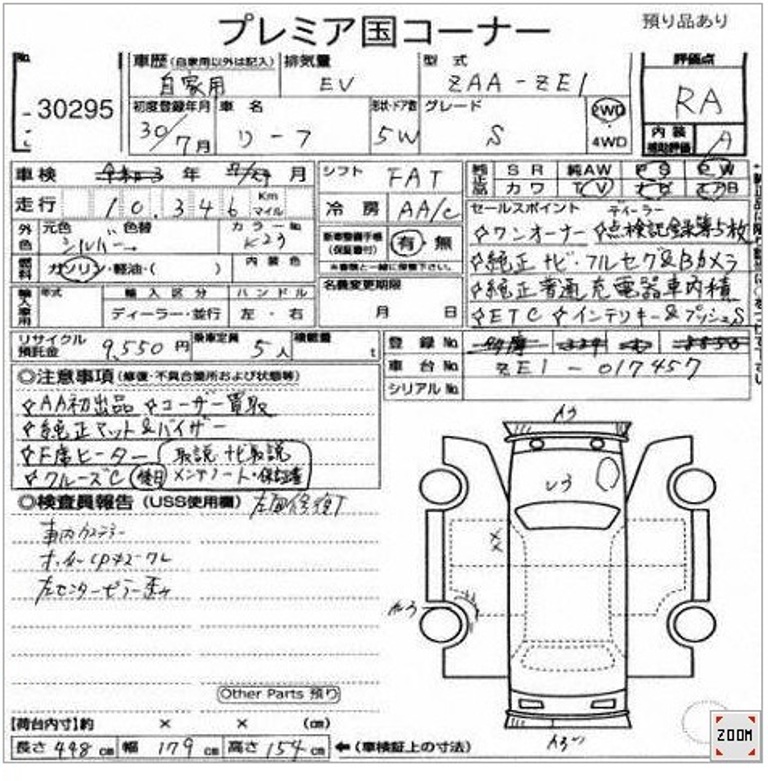 プレミア国コーナー
預り品あり
No.
30295
車歴(自家用以外は記入)
自家用
排気量
EV
型式
ZAA-ZE1
評価点
RA
初度登録年月
30/7月
車名
リーフ
形状・ドア数
5W
グレード
S
2WD
4WD
内装
補助評価
A
車検
年
月
シフト
FAT
走行
10,346
Km
マイル
冷房
AA/C
純正
SR
純AW
PS
PW
カワ
TV
ナビ
エアB
外色
元色
シルバー
色替
カラーNo
K23
燃料
ガソリン・軽油・( )
内装色
新車整備手帳
(保証書付)
有・無
※書類と一緒に保管下さい。
セールスポイント
ディーラー
☆ワンオーナー ☆点検記録簿5枚
☆純正ナビ・フルセグ&Bカメラ
☆純正普通充電器車内積
☆ETC ☆インテリキー&プッシュS
輸入車用
年式
輸入区分
ハンドル
ディーラー・並行
左・右
名義変更期限
月 日
リサイクル
預託金
9,550円
乗車定員
5人
積載量
t
登録No.
車台No.
ZE1-017457
シリアルNo.
◎注意事項(修復・不具合箇所および状態等)
☆AA初出品 ☆ユーザー買取
☆純正マット&バイザー
☆F席ヒーター
取説 ナビ取説
☆クルーズC
後日
メンテノート・保証書
◎検査員報告(USS使用欄)
左面修復
左センターピラー歪み
A3
U3
XX
A3
Other Parts 預り
【荷台内寸】約 × × (cm)
長さ 448 cm 幅 179 cm 高さ 154 cm ←(車検証上の寸法)
ZOOM